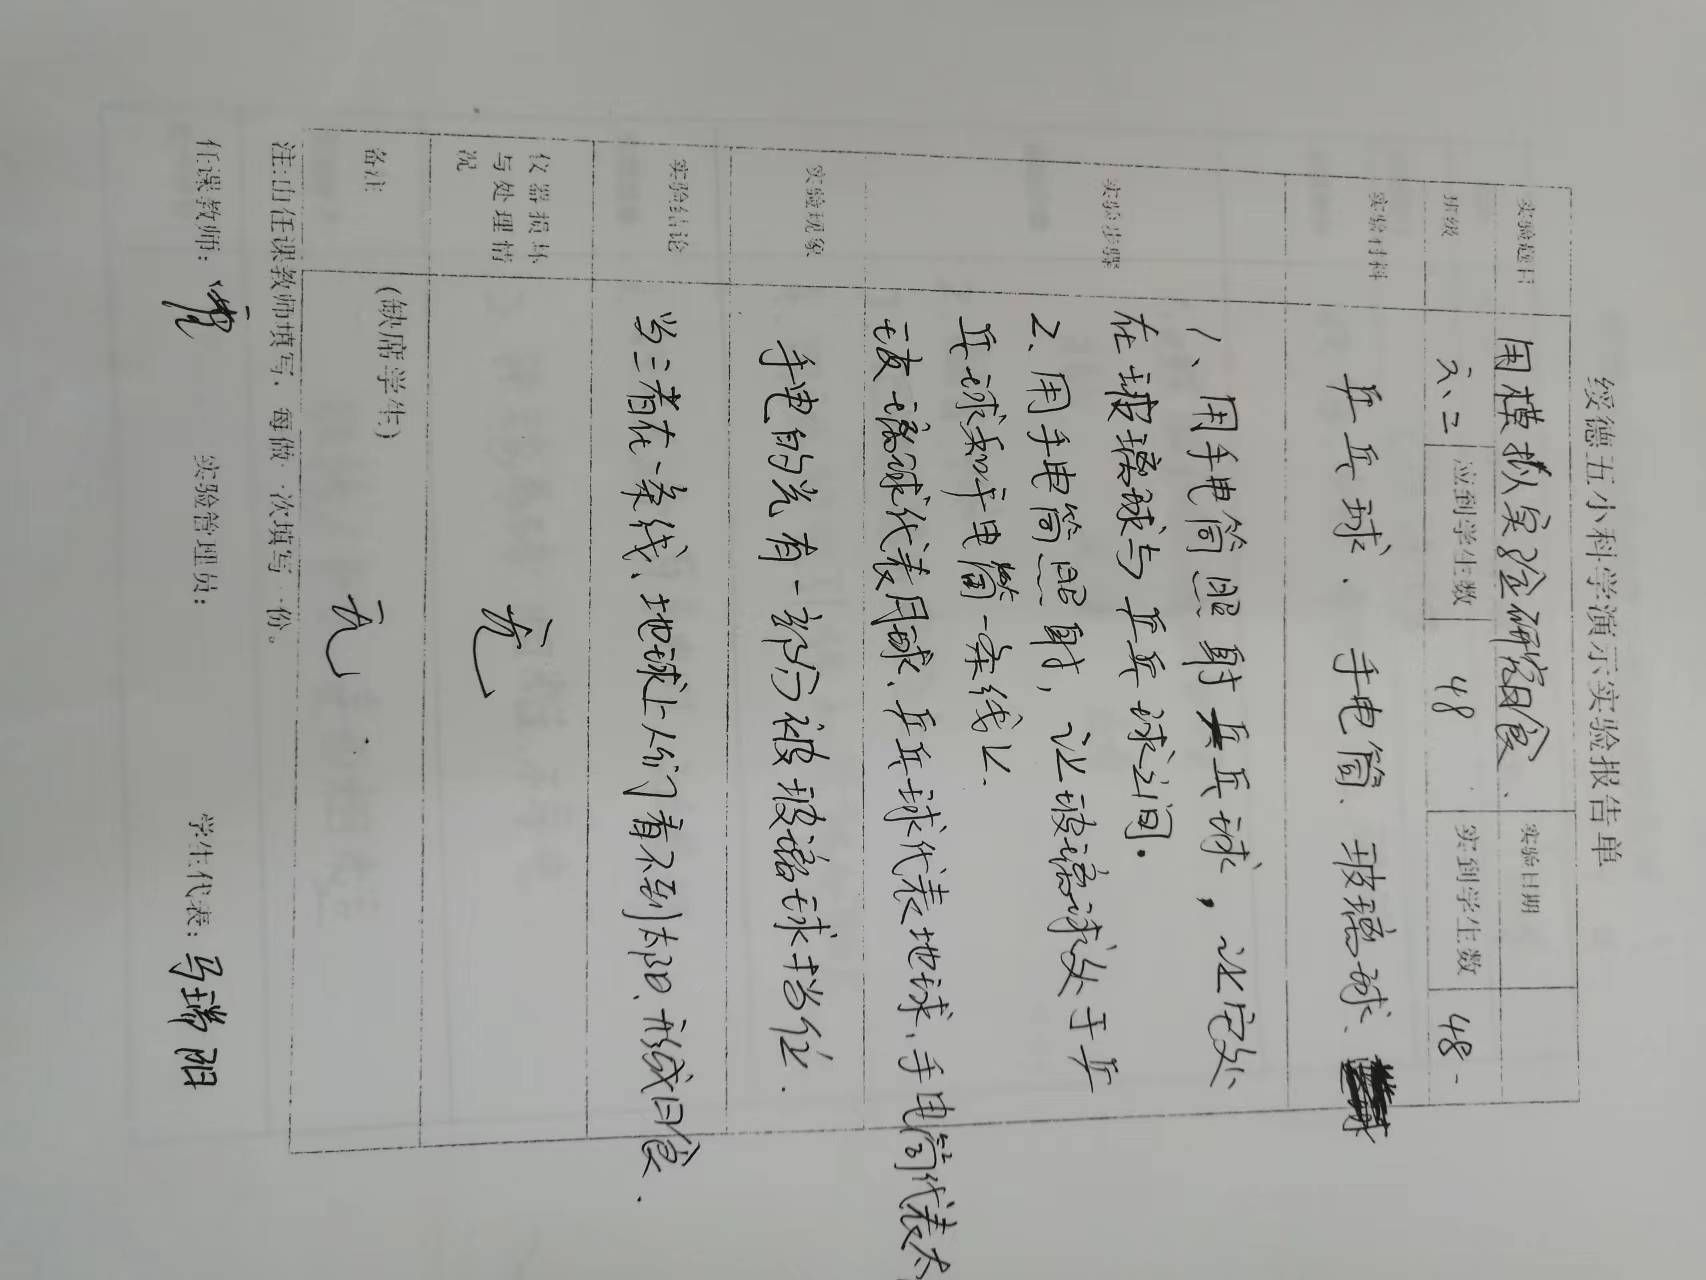 绥德五小科学演示实验报告单
实验题目 用模拟实验研究日食、 实验日期
班级 六、二 应到学生数 48 实到学生数 48
实验材料 乒乓球、手电筒、玻璃球、
实验步骤
1、用手电筒照射乒乓球,让它处
在玻璃球与乒乓球之间.
2、用手电筒照射,让玻璃球处于乒
乓球和手电筒一条线上.
玻璃球代表月球、乒乓球代表地球、手电筒代表太
实验现象 手电的光有一部分被玻璃球挡住.
实验结论 当三者在一条线、地球上人们看不到太阳、形成日食.
仪器损坏
与处理情
况
无
备注 (缺席学生)
无
注:由任课教师填写,每做一次填写一份。
任课教师: 实验管理员: 学生代表:马瑞阳